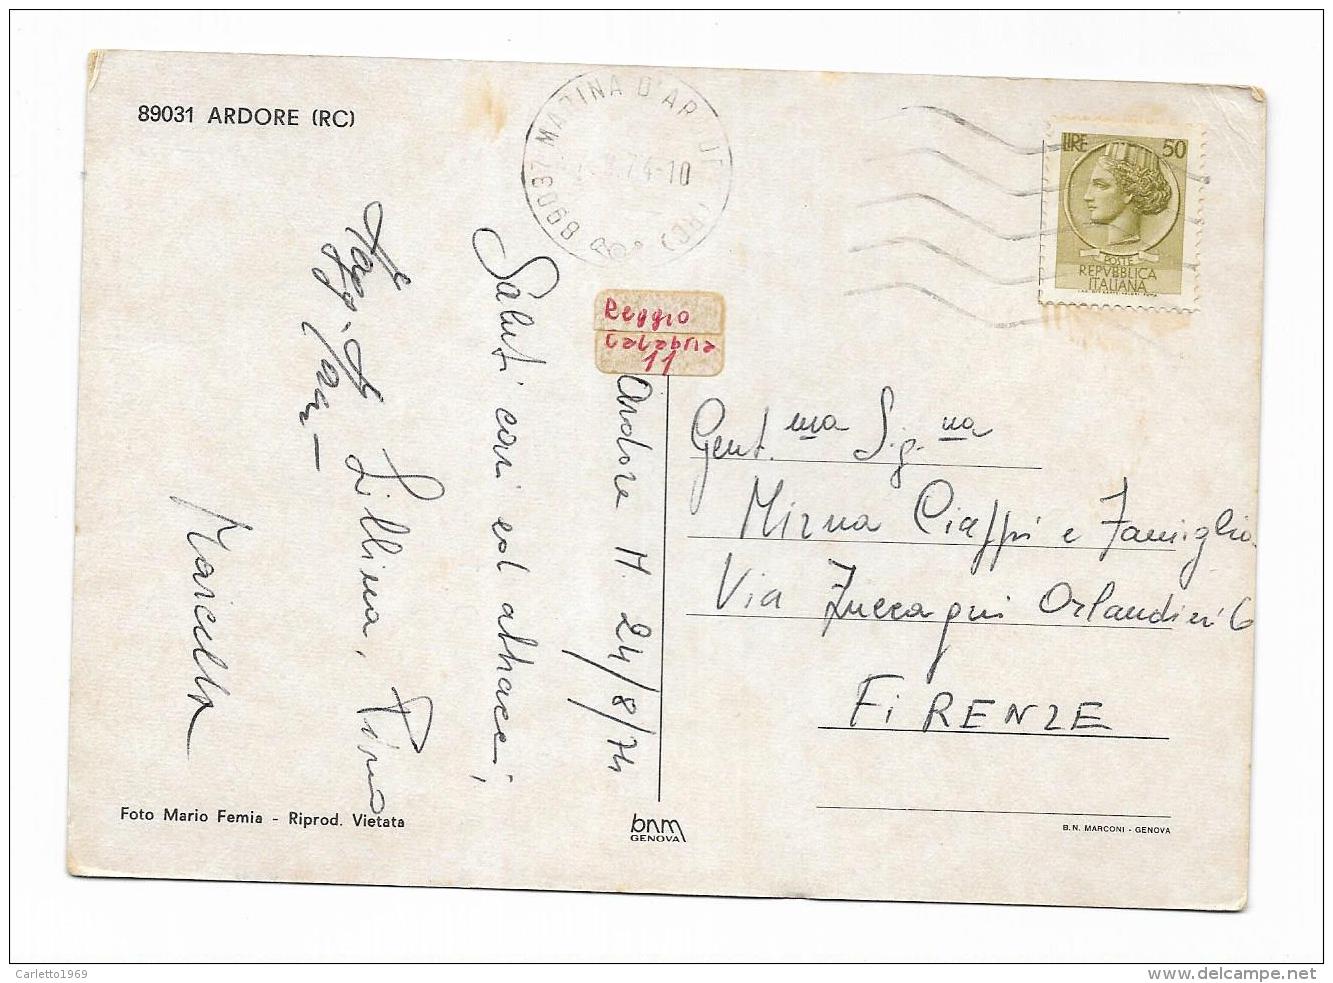 89031 ARDORE (RC)
89037 MARINA D'ARDORE (RC)
74-10
LIRE 50
POSTE
REPVBBLICA
ITALIANA
Reggio
Calabria
11
Ardore M. 24/8/74
Saluti cari ed abbracci,
Lillina, Pino
Marcella
Gent.ma Sig.na
Mirna Ciappi e Famiglia
Via Zuccagni Orlandini 6
FiRENZE
Foto Mario Femia - Riprod. Vietata
bnm
GENOVA
B.N. MARCONI - GENOVA
Carletto1969
delcampe.net